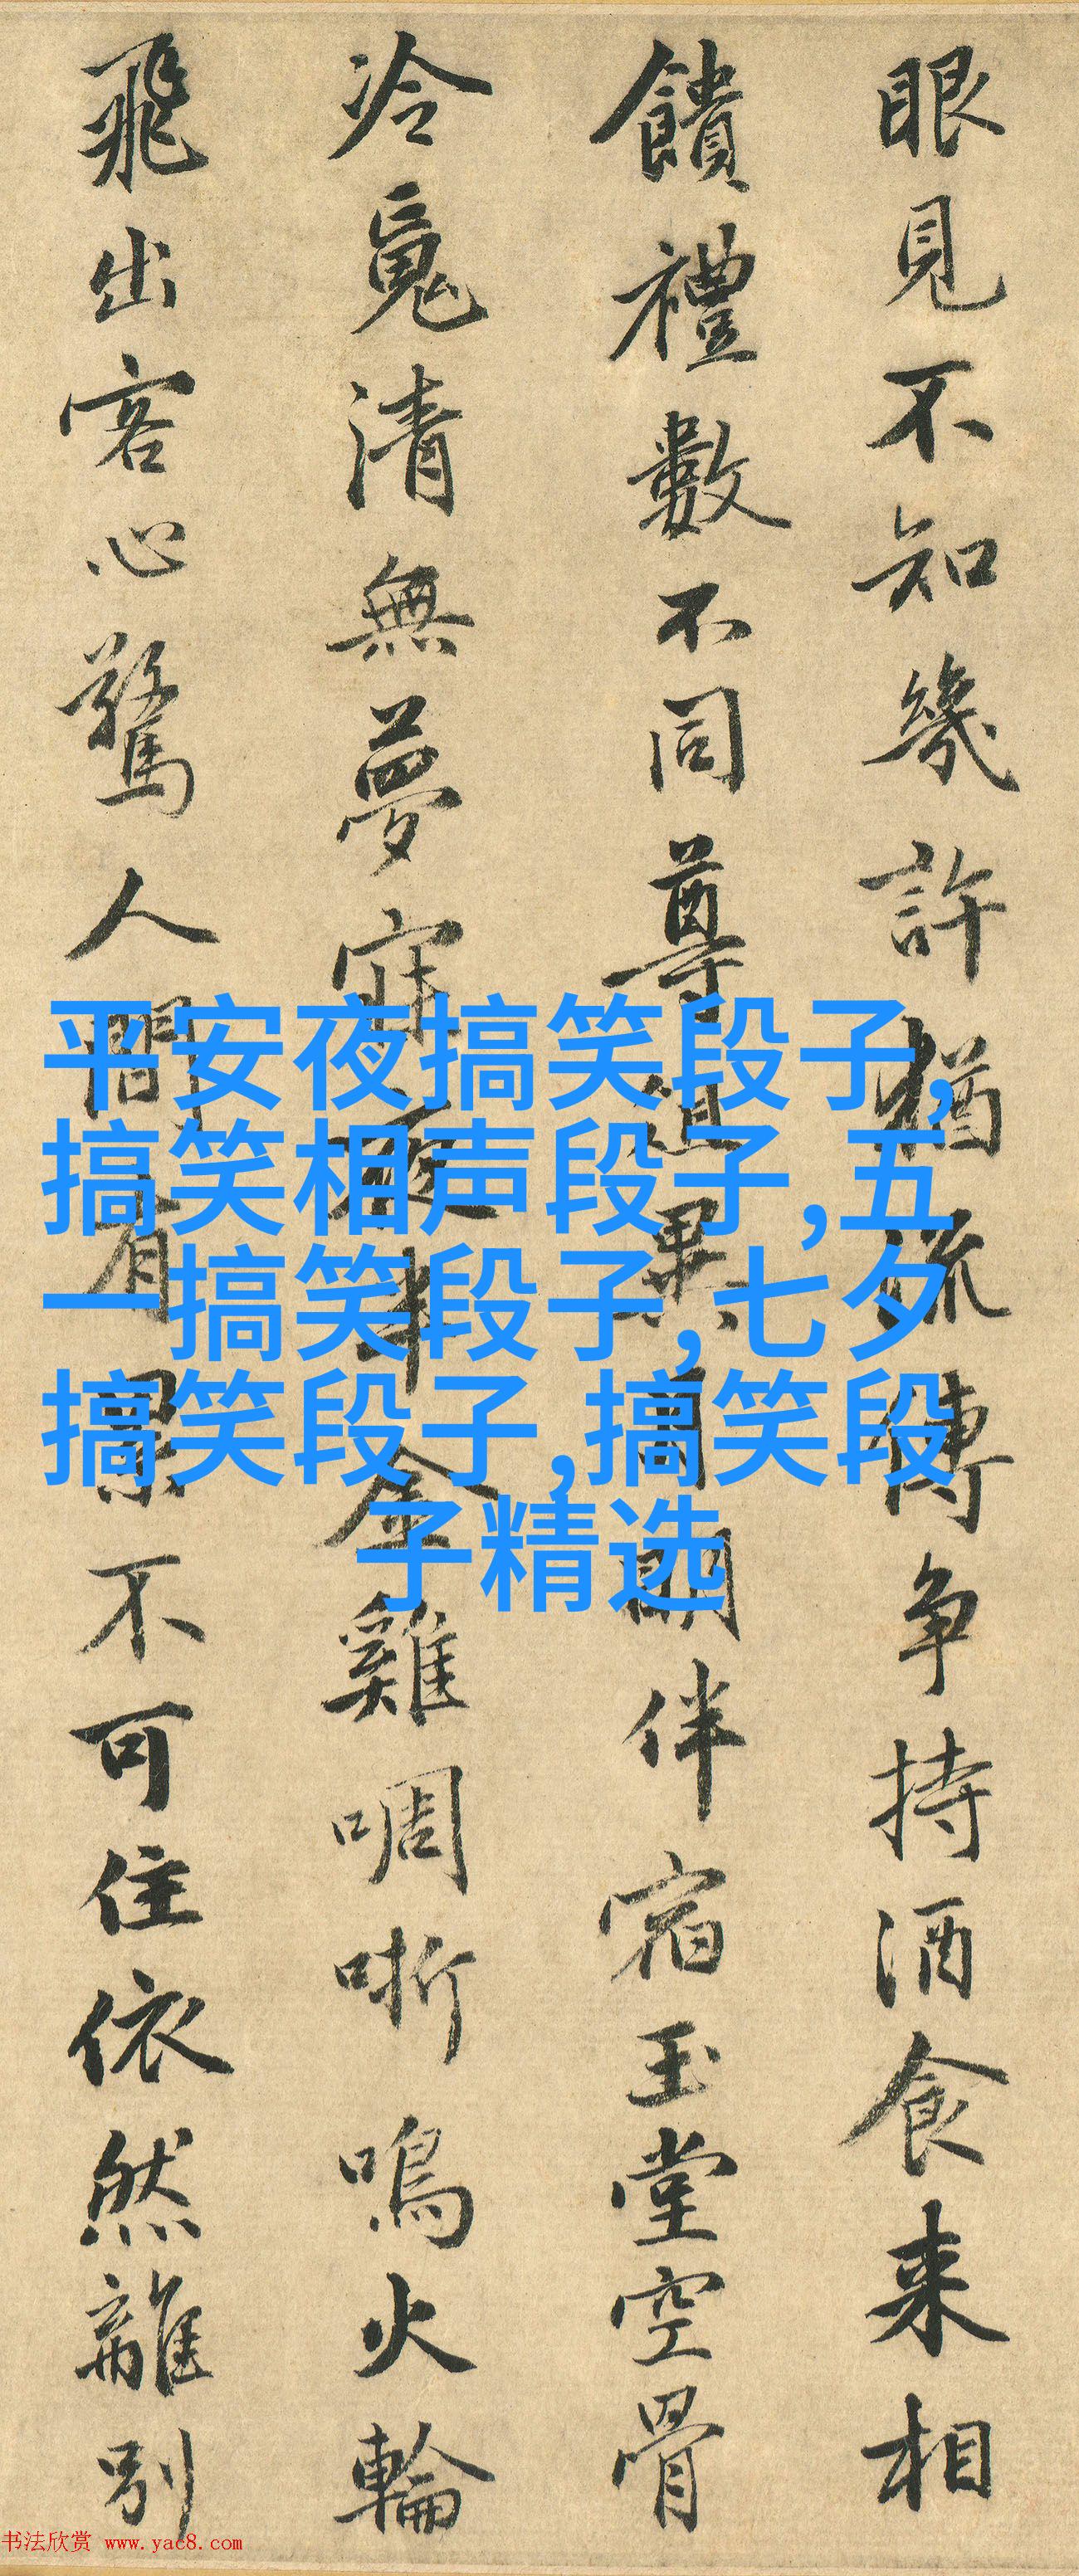 眼見不知幾許猶流傳爭持酒食来相
饋禮數不同尊俎異月明伴宿玉堂空骨
冷魂清無夢寐夜半金雞啁哳鳴火輪
飛出客心驚人間有累不可住依然離別
平安夜搞笑段子,
搞笑相声段子,五
一搞笑段子,七夕
搞笑段子,搞笑段
子精选
书法欣赏 www.yac8.com